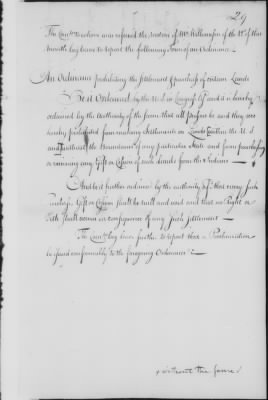 29
The Com.ee to whom was referred the motion of Mr Williamson of the of this
month beg leave to report the following Form of an Ordinance.
An Ordinance prohibiting the Settlement & purchase of Indian Lands
Be it Ordained by the U. S. in Congress and it is hereby
ordained by the authority of the same that all persons be and they are
hereby prohibited from making Settlements on Lands the U S
and without the Boundaries of any particular State and from purchasing
or receiving any Gift or Cession of such Lands from the Indians
And be it further ordained by the authority that every such
purchase Gift or Cession shall be null and void and that no Right or
Title shall accrue in consequence of any such Settlement
The com.ee beg leave further to report that a Proclamation
be issued conformably to the foregoing Ordinance
x without the same